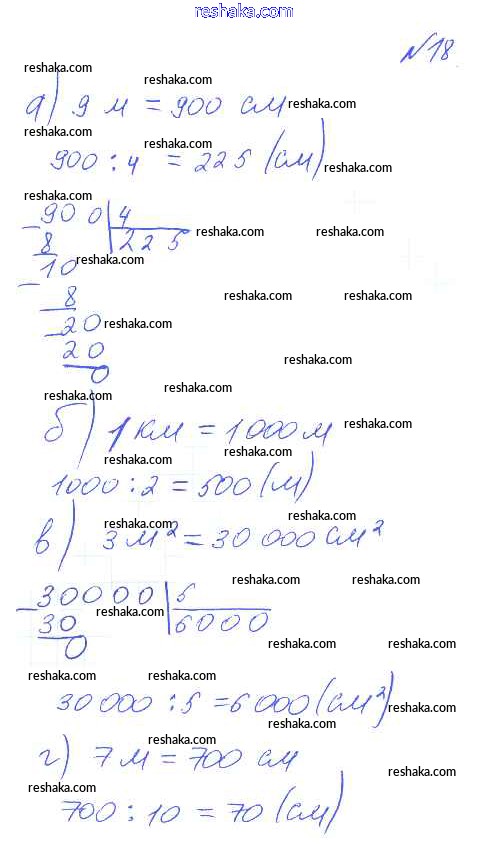 reshaka.com
№18
reshaka.com
reshaka.com
а) 9 м = 900 см reshaka.com
reshaka.com reshaka.com
900 : 4 = 225 (см) reshaka.com
reshaka.com
900 | 4 reshaka.com reshaka.com
8 225
10 reshaka.com
8 reshaka.com reshaka.com
20 reshaka.com
20 reshaka.com
0
reshaka.com reshaka.com
б) 1 км = 1000 м reshaka.com
reshaka.com
1000 : 2 = 500 (м)
reshaka.com reshaka.com
в) 3 м² = 30 000 см²
reshaka.com reshaka.com
30000 | 5 reshaka.com
30 6000
0 reshaka.com reshaka.com
reshaka.com reshaka.com
30 000 : 5 = 6 000 (см²) reshaka.com
reshaka.com reshaka.com
г) 7 м = 700 см
reshaka.com reshaka.com
700 : 10 = 70 (см)
reshaka.com reshaka.com